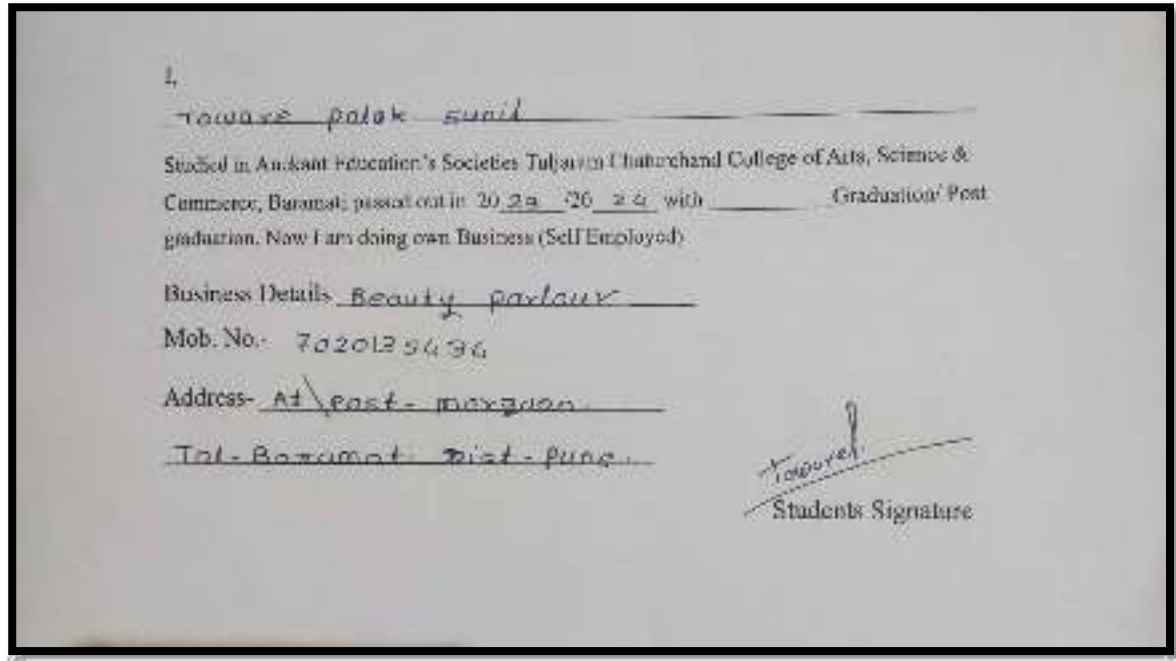 I,
Taware palak sunil
Studied in Anekant Education's Societies Tuljaram Chaturchand College of Arts, Science &
Commerce, Baramati passed out in 20 /20 24 with ________ Graduation/ Post
graduation. Now I am doing own Business (Self Employed)
Business Details Beauty parlour
Mob. No.-
Address- At\post- morgaon.
Tal- Baramati Dist- Pune.
Taware
Students Signature